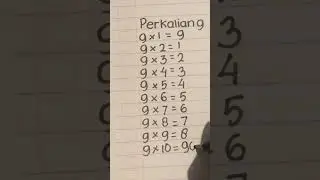 Perkalian 9
9 × 1 = 9
9 × 2 = 1
9 × 3 = 2
9 × 4 = 3
9 × 5 = 4
9 × 6 = 5
9 × 7 = 6
9 × 8 = 7
9 × 9 = 8
9 × 10 = 9
3
4
5
6